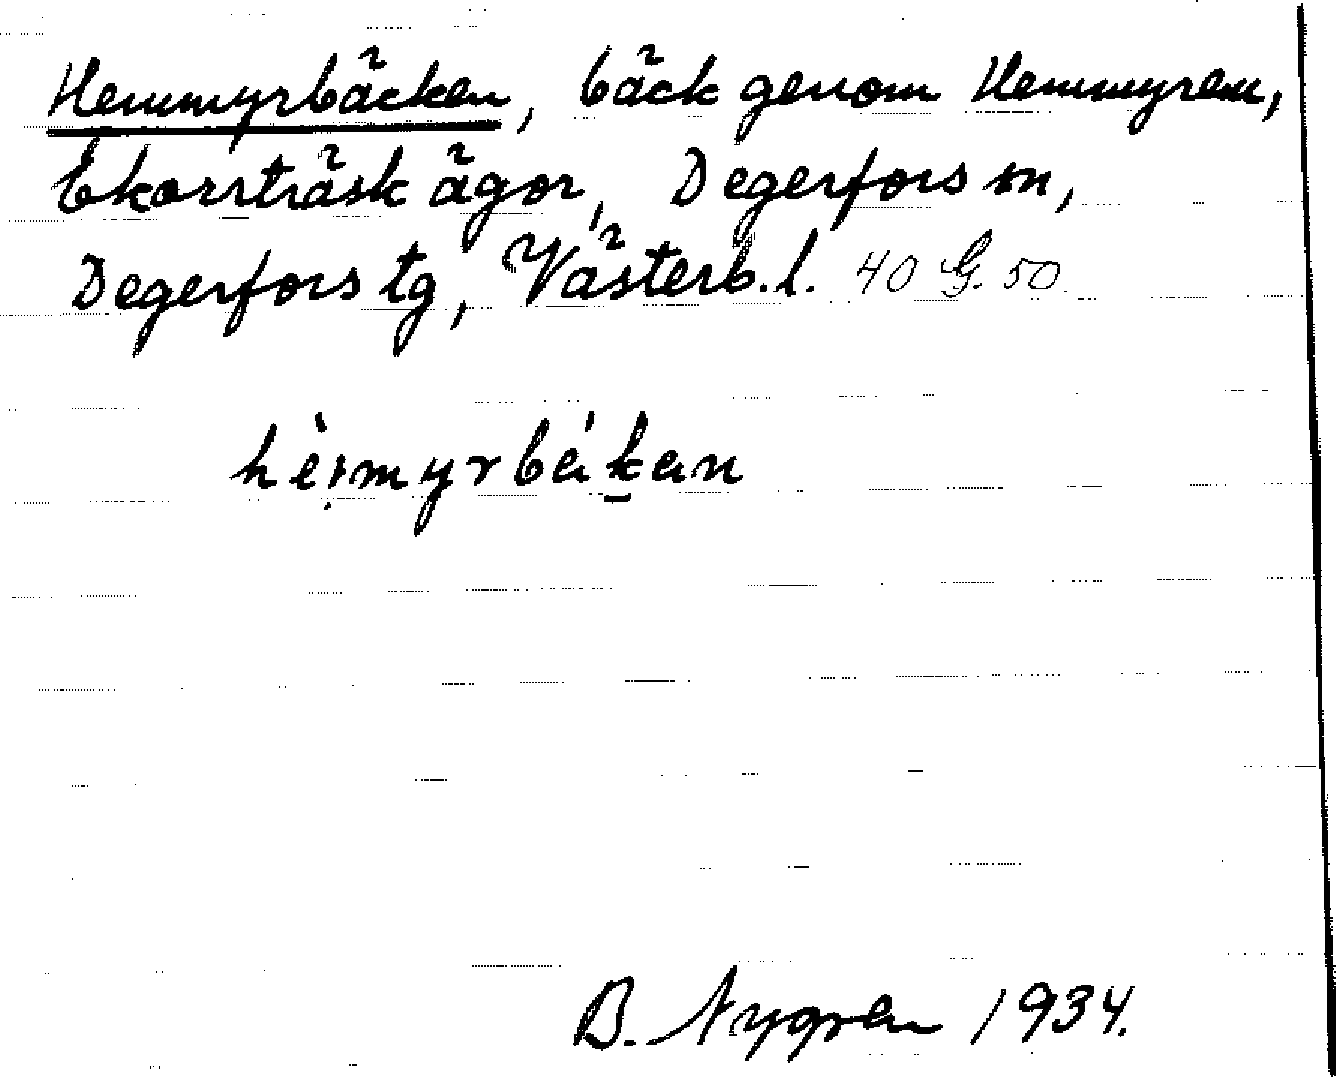 Hemmyrbäcken, bäck genom Hemmyren,
Ekorrträsk ägor, Degerfors sn,
Degerfors tg, Västerb. l. 40 G. 50
hèi̩myrbák̠an
B. Nygren 1934.